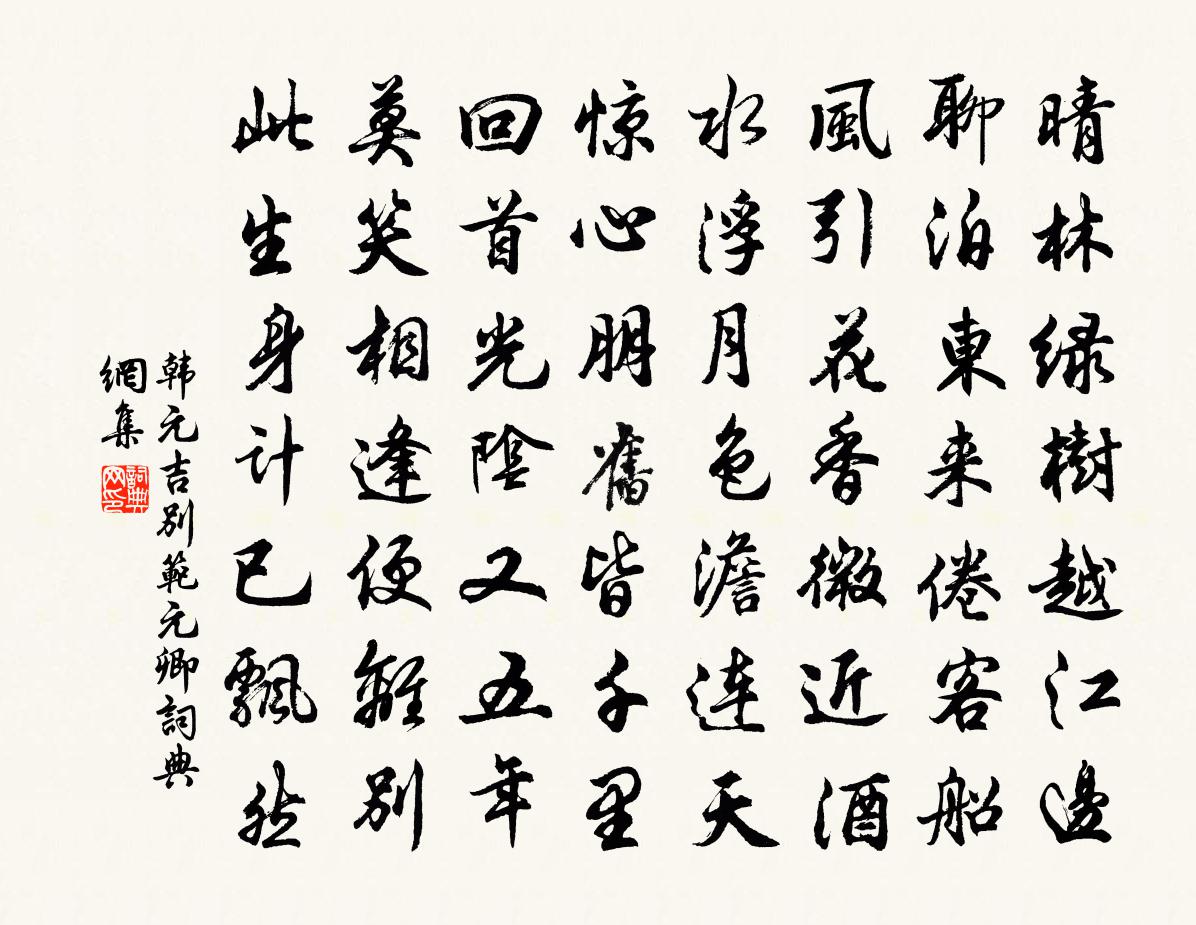 晴林绿樹越江邊
聊泊東来倦客船
風引花香微近酒
水浮月色澹連天
惊心朋舊皆千里
回首光陰又五年
莫笑相逢便難别
此生身計已飄然
韩元吉别範元卿詞典
網集
詞典
网印